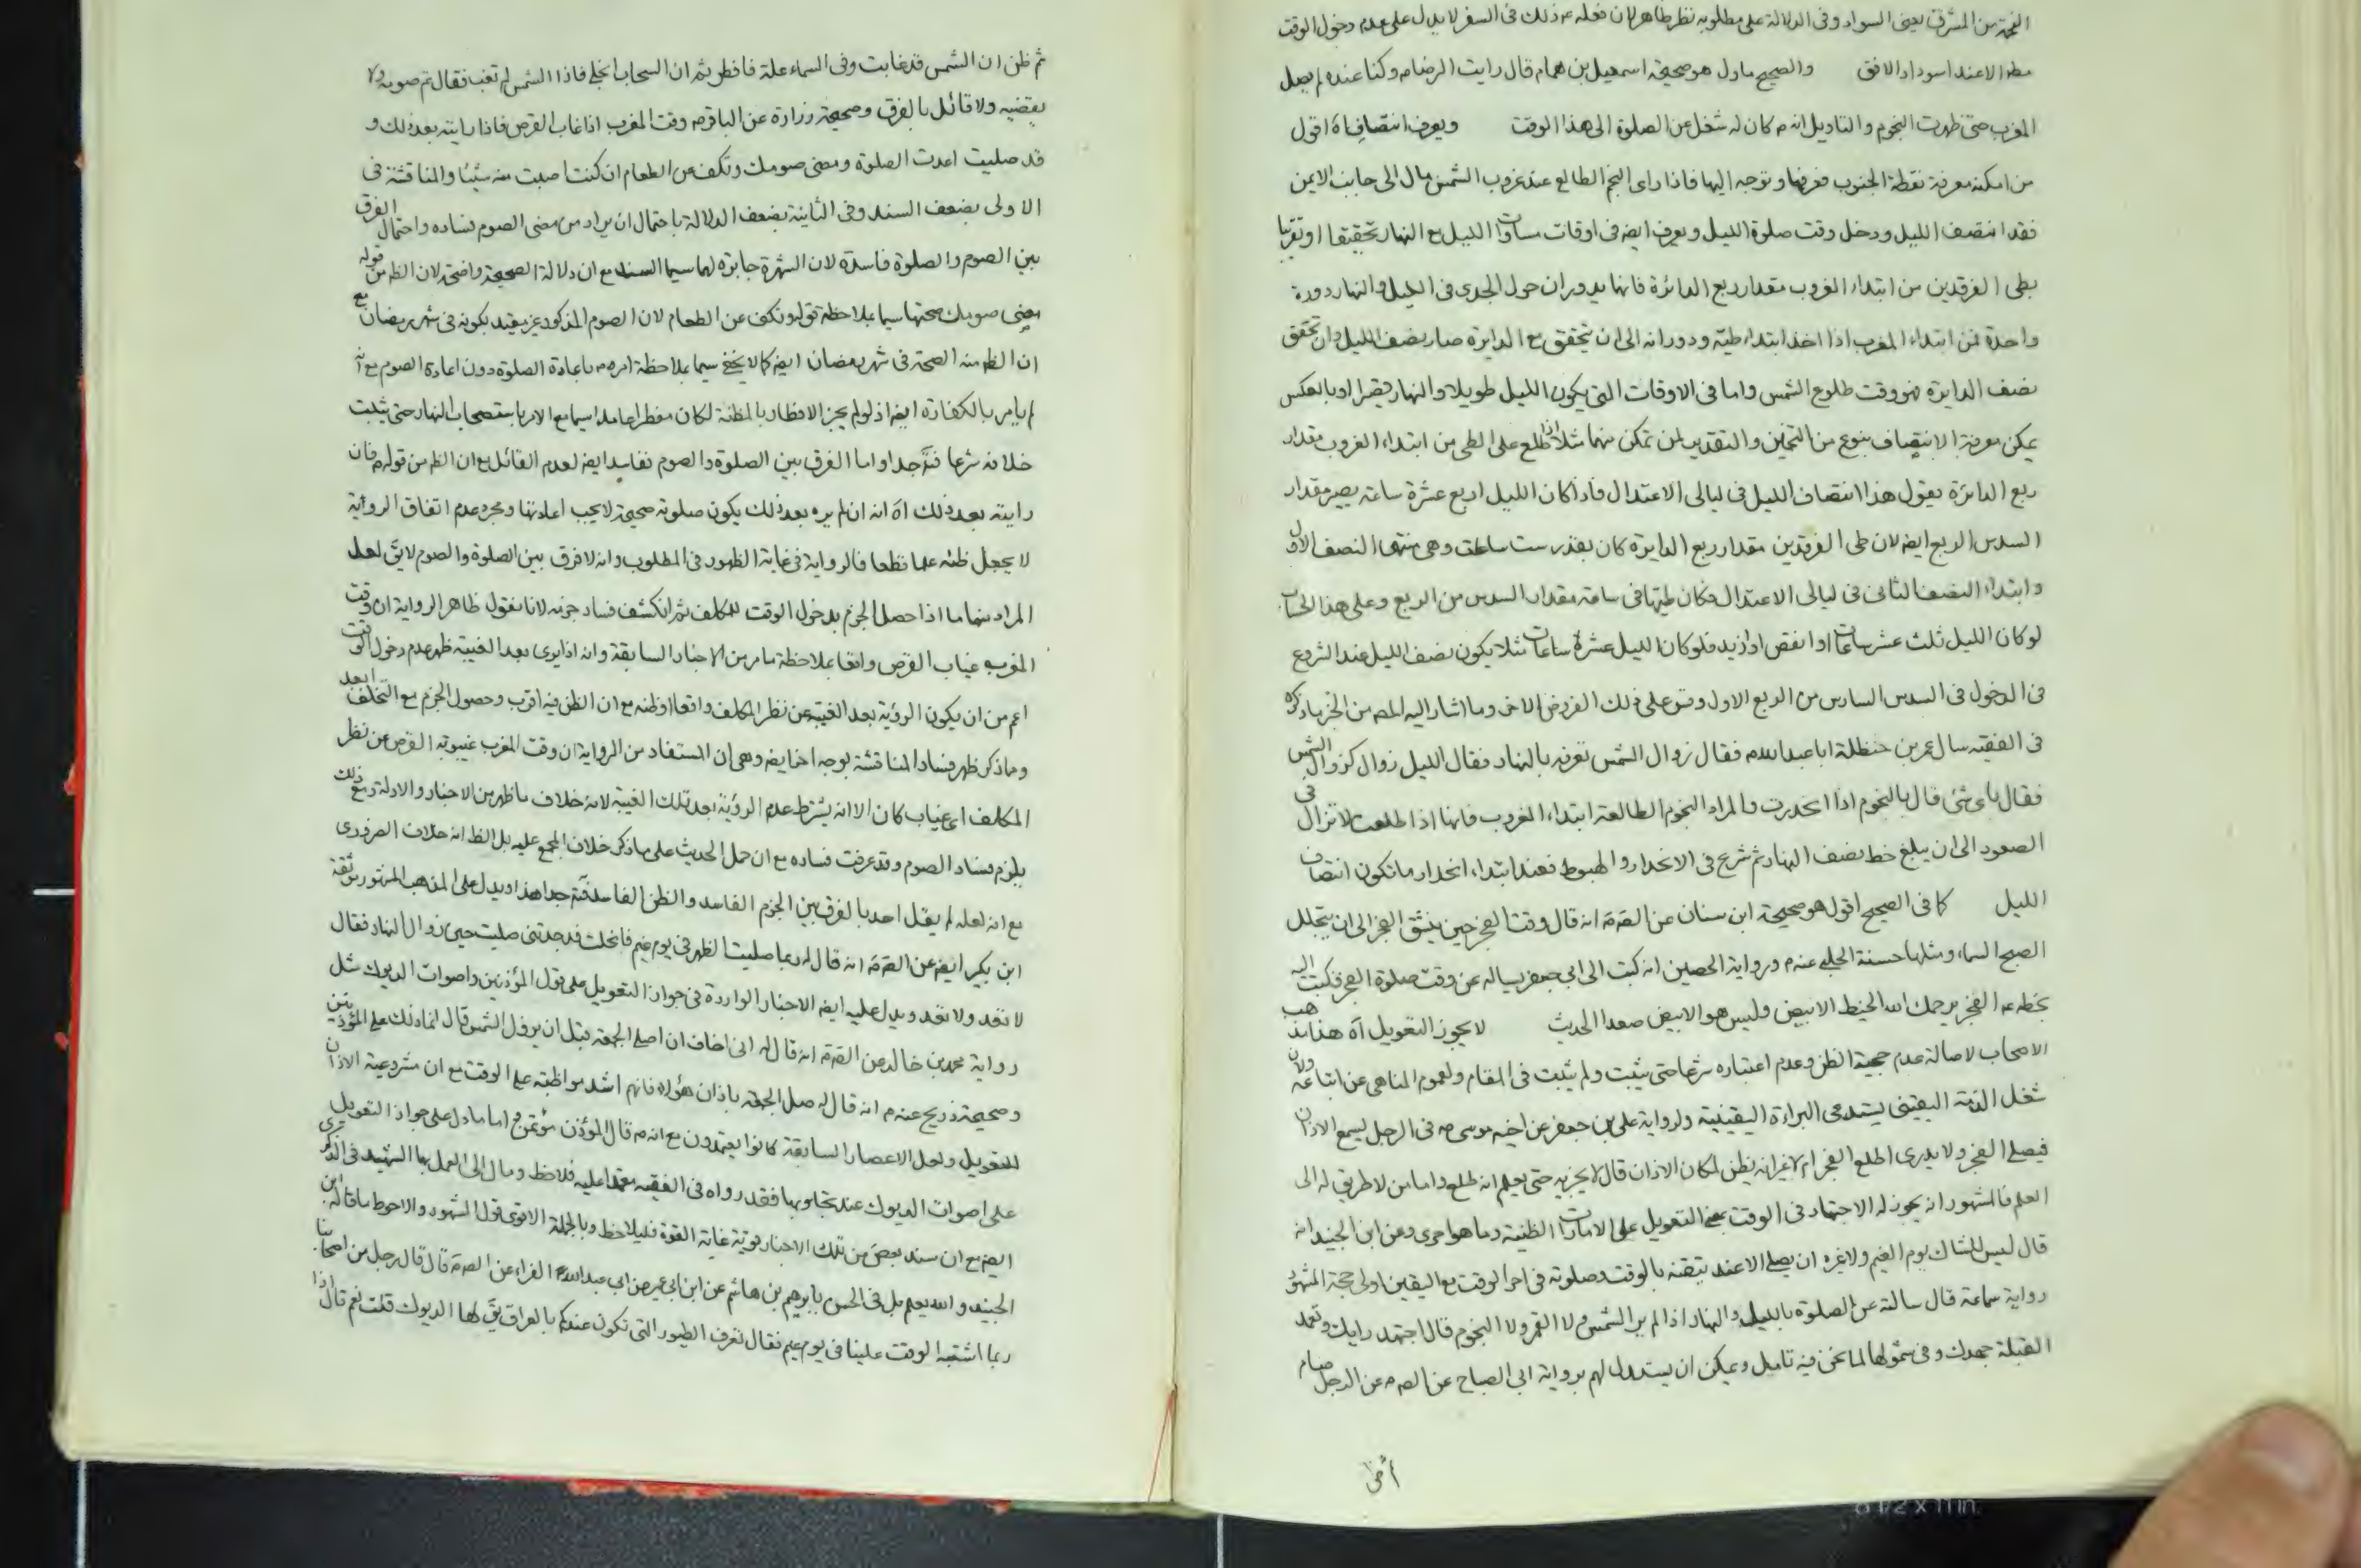 الحمرة من المشرق يعنى السواد وفى الدلالة على مطلوبه نظر ظاهر لان فعله م ذلك فى السفر لا يدل على عدم دخول الوقت
مطه الا عند اسوداد الافق والصحيح ماول هو صحيحة اسمعيل بن همام قال رايت الرضا م وكنا عنده لم يصل
المغرب حتى ظهرت النجوم والتاويل انه م كان له شغل عن الصلوة الى هذا الوقت ويعرف انتصافه اه اقول
من امكنه معرفة نقطة الجنوب فعرفها وتوجه اليها فاذا راى النجم الطالع عند غروب الشمس مال الى جانبه الايمن
فقد انتصف الليل ودخل وقت صلوة الليل ويعرف ايضه فى اوقات مساوات الليل مع النهار تحقيقا او تقريبا
بطى الفرقدين من ابتداء الغروب مقدار ربع الدائرة فانهما يدوران حول الجدى فى الليل والنهار دورة
واحدة فمن ابتداء المغرب اذا اخذ ابتداء طيه ودورانه الى ان يتحقق ربع الدايرة صار نصف الليل وان تحقق
نصف الدايرة فهو وقت طلوع الشمس واما فى الاوقات التى يكون الليل طويلا والنهار قصيرا او بالعكس
يمكن معرفة الانتصاف بنوع من التخمين والتقدير لمن تمكن منهما مثلا اذا طلع على الطى من ابتداء الغروب مقدار
ربع الدائرة يقول هذا انتصاف الليل فى ليالى الاعتدال فاذا كان الليل اربع عشرة ساعة يصير مقدار
السدس الربع ايضه لان طى الفرقدين مقدار ربع الدايرة كان بقدر ست ساعات وهى منتهى النصف الاول
وابتداء النصف الثانى فى ليالى الاعتدال فكان طيها فى ساعة مقدار السدس من الربع وعلى هذا الحساب
لو كان الليل ثلث عشر ساعات او انقص او ازيد فلو كان الليل عشرة ساعات مثلا يكون نصف الليل عند الشروع
فى الدخول فى السدس السادس من الربع الاول وقس على ذلك الفروض الاخر وما اشار اليه المصه من الخبر ما ذكره
فى الفقيه سال عمر بن حنظلة ابا عبد الله م فقال زوال الشمس نعرفه بالنهار فقال الليل زوال كزوال الشمس
فقال باى شئ قال بالنجوم اذا انحدرت والمراد النجوم الطالعة ابتداء الغروب فانها اذا طلعت لا تزال فى
الصعود الى ان يبلغ خط نصف النهار ثم شرع فى الانحدار والهبوط فعند ابتداء انحدارها تكون انتصاف
الليل كما فى الصحيح اقول هو صحيحة ابن سنان عن الصه م انه قال وقت الفجر حين ينشق الفجر الى ان يتجلل
الصبح السماء ومثلها حسنة الحلبى عنه م ورواية الحصين انه كتب الى ابى جعفر يساله عن وقت صلوة الفجر فكتب اليه
بخطه م الفجر يرحمك الله الخيط الابيض وليس هو الابيض صعدا الحديث لا يجوز التعويل اه هذا مذهب
الاصحاب لاصالة عدم حجية الظن وعدم اعتباره شرعا حتى يثبت ولم يثبت فى المقام ولعموم المناهى عن اتباعه ولان
شغل الذمة اليقينى يستدعى البراءة اليقينية ولرواية على بن جعفر عن اخيه موسى م فى الرجل يسمع الاذان
فيصلى الفجر ولا يدرى اطلع الفجر ام لا غير انه يظن لمكان الاذان قال لا يجزيه حتى يعلم انه طلع واما من لا طريق له الى
العلم فالمشهور انه يجوز له الاجتهاد فى الوقت بمعنى التعويل على الامارات الظنية وما هو احرى وعن ابن الجنيد انه
قال ليس للشاك يوم الغيم ولا غيره ان يصلى الا عند تيقنه بالوقت وصلوته فى اخر الوقت مع اليقين اولى حجة المشهور
رواية سماعة قال سالته عن الصلوة بالليل والنهار اذا لم ير الشمس ولا القمر ولا النجوم قال اجتهد رايك وتعمد
القبلة جهدك وفى شمولها لما نحن فيه تامل ويمكن ان يستدل لهم برواية ابى الصباح عن الصه م عن الرجل صام
ثم ظن ان الشمس قد غابت وفى السماء علة فافطر ثم ان السحاب انجلى فاذا الشمس لم تغب فقال تم صومه ولا
يقضيه ولا قائل بالفرق وصحيحة زرارة عن الباقر م وقت المغرب اذا غاب القرص فاذا رايته بعد ذلك و
قد صليت اعدت الصلوة ومضى صومك وتكف عن الطعام ان كنت اصبت منه شيئا والمناقشة فى
الاولى بضعف السند وفى الثانية بضعف الدلالة باحتمال ان يراد من مضى الصوم فساده واحتمال الفرق
بين الصوم والصلوة فاسدة لان الشهرة جابرة لها سيما السند مع ان دلالة الصحيحة واضحة لان الظه من قوله
مضى صومك صحتها سيما بملاحظة قوله وتكف عن الطعام لان الصوم المذكور غير مقيد بكونه فى شهر رمضان مع
ان الظه منه الصحة فى شهر رمضان ايضه كما لا يخفى سيما بملاحظة امره م باعادة الصلوة دون اعادة الصوم مع انه
لم يامر بالكفارة ايضه اذ لو لم يجز الافطار بالمظنة لكان مفطرا عامدا سيما مع الامر باستصحاب النهار حتى يثبت
خلافه شرعا فته جدا واما الفرق بين الصلوة والصوم ففاسد ايضه لعدم القائل مع ان الظه من قوله م فان
رايته بعد ذلك اه انه ان لم يره بعد ذلك يكون صلوته صحيحة لا يجب اعادتها ومجرد عدم اتفاق الرؤية
لا يجعل ظنه علما قطعا فالرواية فى غاية الظهور فى المطلوب وانه لا فرق بين الصلوة والصوم لا يق لعل
المراد منهما ما اذا حصل الجزم بدخول الوقت للمكلف ثم انكشف فساد جزمه لانا نقول ظاهر الرواية ان وقت
المغرب غياب القرص واقعا بملاحظة ما مر من الاخبار السابقة وانه اذا يرى بعد الغيبة ظهر عدم دخول الوقت
اعم من ان يكون الرؤية بعد الغيبة عن نظر المكلف واقعا او ظنه مع ان الظن فيه اقرب وحصول الجزم مع التخلف ابعد
ومما ذكر ظهر فساد المناقشة بوجه اخر ايضه وهى ان المستفاد من الرواية ان وقت المغرب غيبوبة القرص عن نظر
المكلف اى غياب كان الا انه يشترط عدم الرؤية بعد تلك الغيبة لانه خلاف ما ظهر من الاخبار والادلة ومع ذلك
يلزم فساد الصوم وقد عرفت فساده مع ان حمل الحديث على ما ذكر خلاف المجمع عليه بل الظه انه خلاف الضرورى
مع انه لعله لم يقل احد بالفرق بين الجزم الفاسد والظن الفاسد فته جدا هذا ويدل على المذهب المشهور موثقة
ابن بكير ايضه عن الصه م انه قال له ربما صليت الظهر فى يوم غيم فانجلت فوجدتنى صليت حين زوال النهار فقال
لا تعد ولا تعد ويدل عليه ايضه الاخبار الواردة فى جواز التعويل على قول المؤذنين واصوات الديوك مثل
رواية محمد بن خالد عن الصه م انه قال له انى اخاف ان اصلى الجمعة قبل ان يزول الشمس قال انما ذلك على المؤذنين
وصحيحة ذريح عنه م انه قال له صل الجمعة باذان هؤلاء فانهم اشد مواظبة على الوقت مع ان مشروعية الاذان
للتعويل ولعل الاعصار السابقة كانوا يعتمدون مع انه م قال المؤذن مؤتمن واما ما دل على جواز التعويل
على اصوات الديوك عند تجاوبها فقد رواه فى الفقيه معتمدا عليه فلاحظ ومال الى العمل بها الشهيد فى الذكرى
ايضه مع ان سند بعض من تلك الاخبار قوية غاية القوة فليلاحظ وبالجملة الاقوى قول المشهور والاحوط ما قاله ابن
الجنيد والله يعلم بل فى الحسن بابرهيم بن هاشم عن ابن ابى عمير عن ابى عبد الله الفراء عن الصه م قال قال رجل من اصحابنا
ربما اشتبه الوقت علينا فى يوم غيم فقال تعرف الطيور التى تكون عندكم بالعراق يق لها الديوك قلت نعم قال اذا